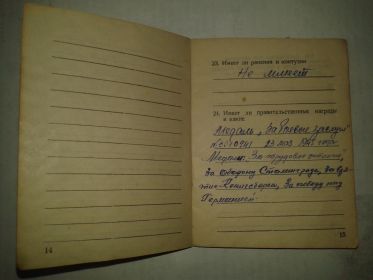 23. Имеет ли ранения и контузии
Не имеет
24. Имеет ли правительственные награды
и какие
Медаль „За боевые заслуги"
23 мая 1945 года
Медали: За
За оборону Сталинграда, За взя-
тие Кенигсберга, За победу над
Германией.
14
15